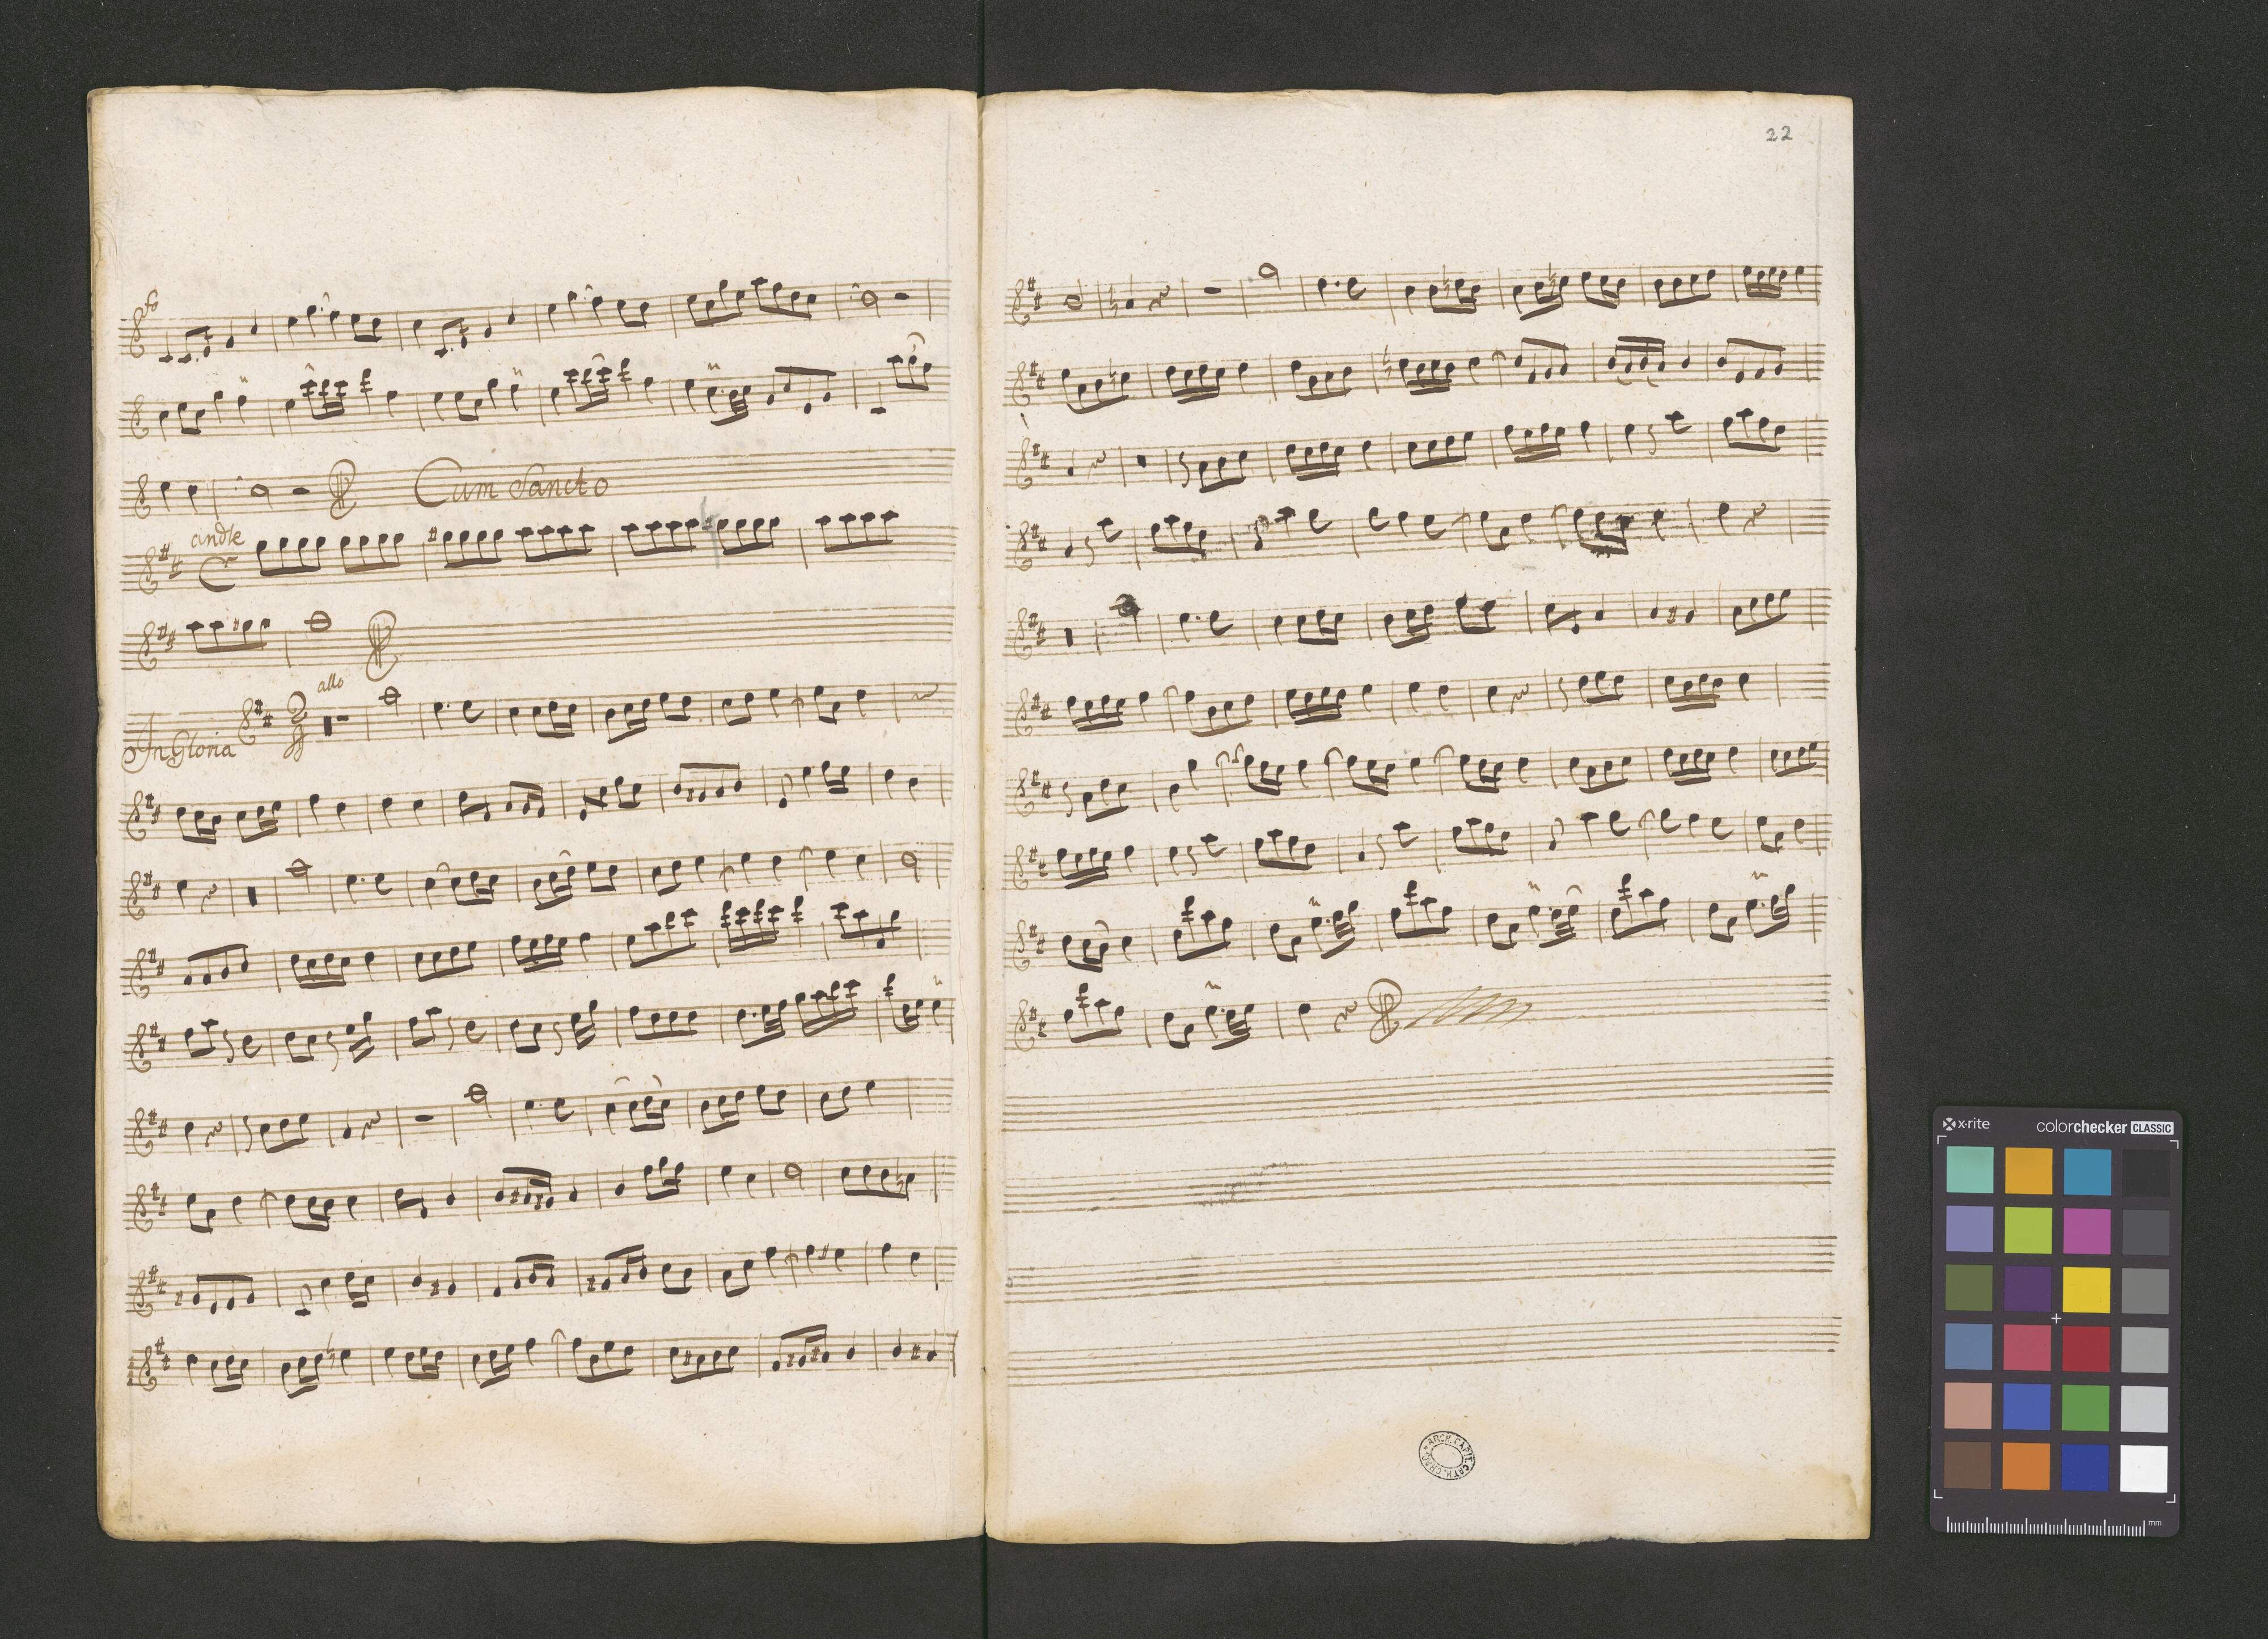 fo
Cum Sancto
andte
allo
In Gloria
22
ARCH. CAPIT. CATH. CRAC.
x-rite
colorchecker CLASSIC
mm